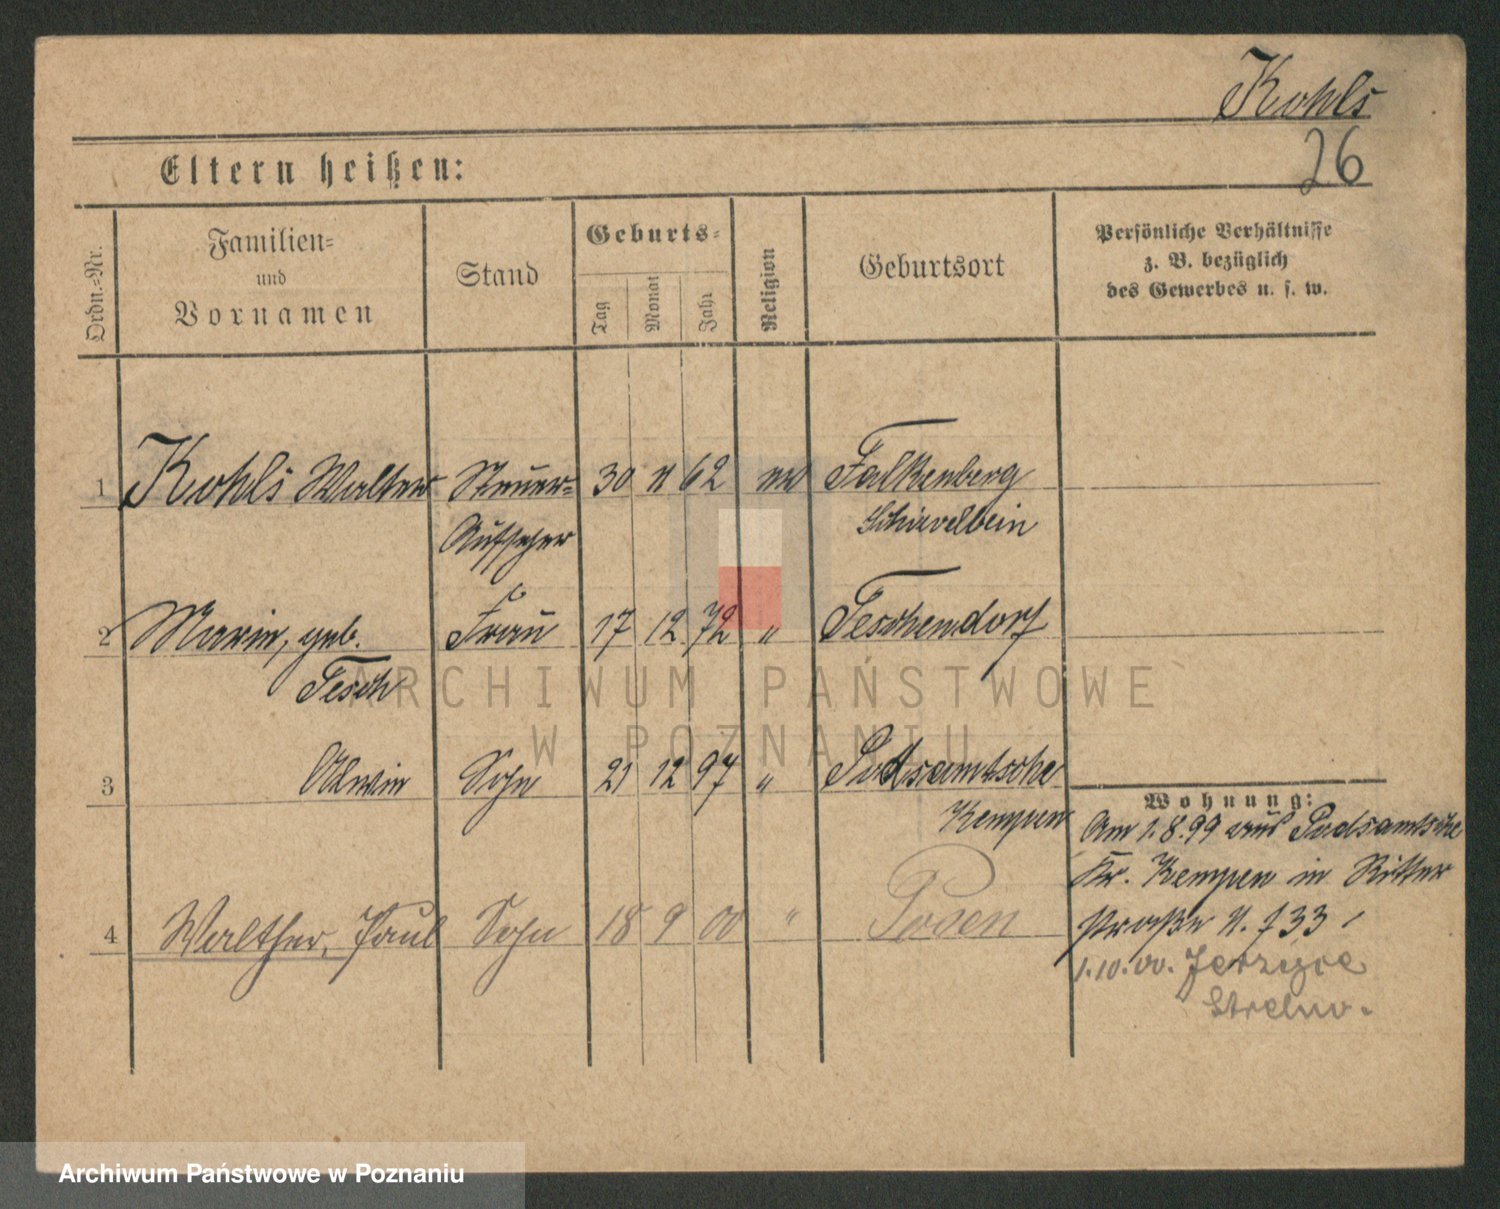 Kohls
26
Eltern heißen:
Ordn.-Nr.
Familien=
und
Vornamen
Stand
Geburts=
Tag
Monat
Jahr
Religion
Geburtsort
Persönliche Verhältnisse
z. B. bezüglich
des Gewerbes u. s. w.
1 Kohls Walter Steuer= 30 11 62 ev Falkenberg
Aufseher Schivelbein
2 Marie, geb. Frau 17 12 72 " Teschendorf
Tesch
3 Alwin Sohn 21 12 97 " Podsamtsche
Kempen
Wohnung:
Am 1.8.99 aus Podsamtsche
Kr. Kempen in Ritter
straße N. 33
4 Walther, Paul Sohn 18 9 00 " Posen
1.10.00. Jerzyce
Strelno.
ARCHIWUM PAŃSTWOWE
W POZNANIU
Archiwum Państwowe w Poznaniu